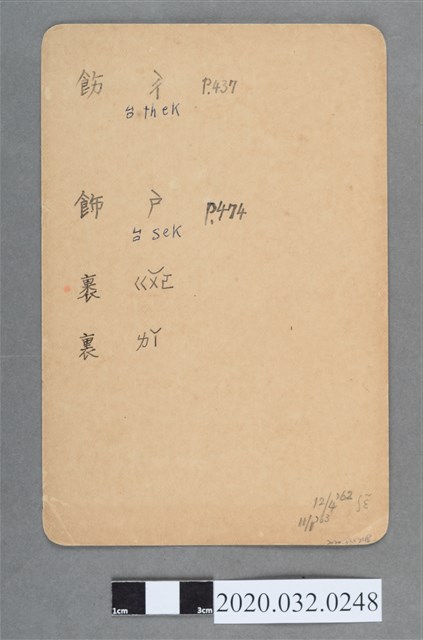 飭 ㄔˋ P.437
台 theK
飾 ㄕˋ P.474
台 seK
裹 ㄍㄨㄛˇ
裏 ㄌㄧˇ
12/4 '62
1cm 3cm
2020.032.0248